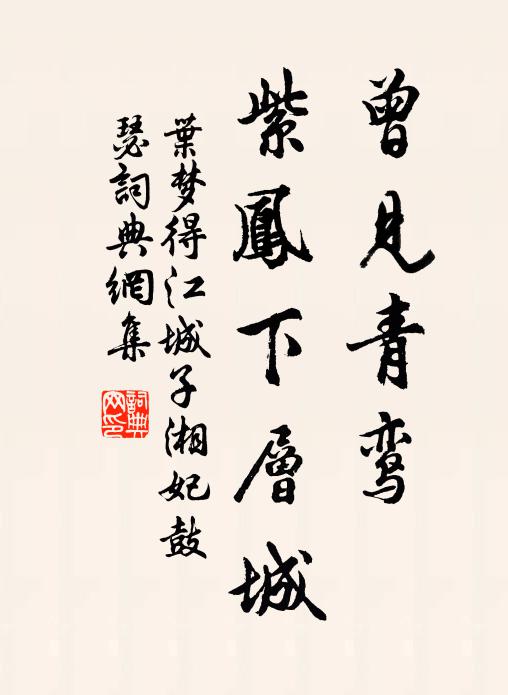 曾见青鸾
紫鳳下層城
葉梦得江城子湘妃鼓
瑟詞典網集
詞典
网印